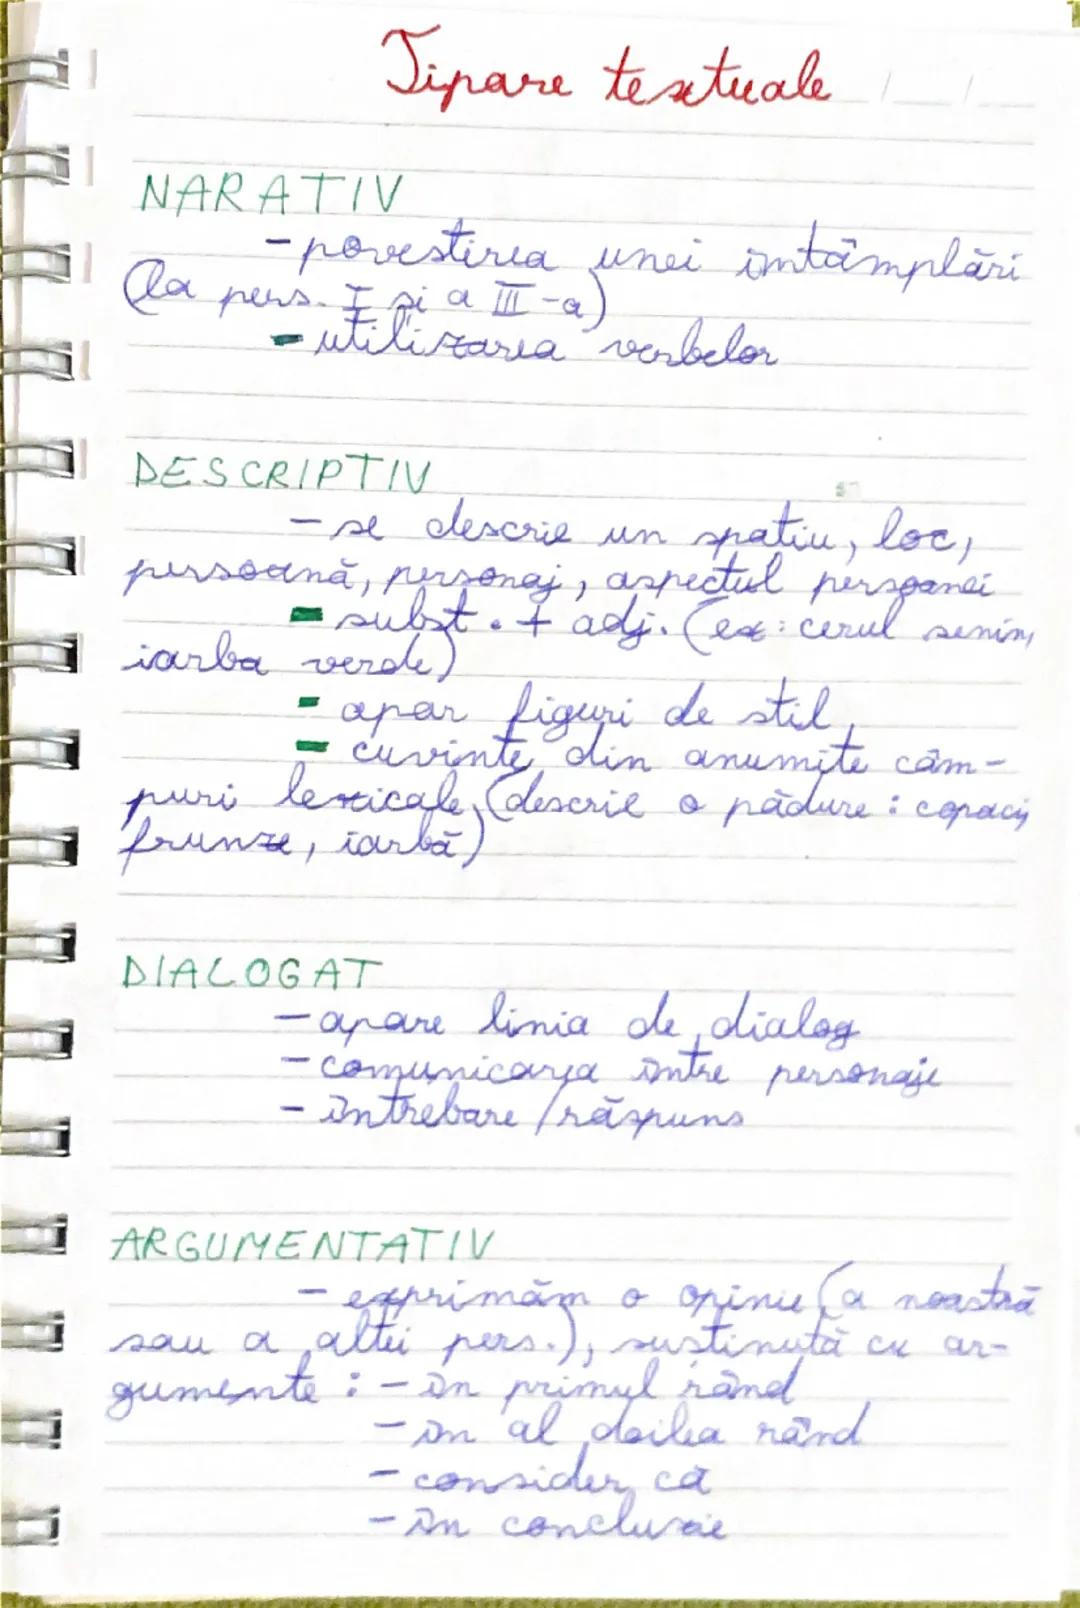 Tipare textuale
NARATIV
- povestirea unei întâmplări
(la pers. I și a III-a)
- utilizarea verbelor
DESCRIPTIV
- se descrie un spațiu, loc,
persoană, personaj, aspectul persoanei
- subst. + adj. (ex: cerul senin,
iarba verde)
- apar figuri de stil
- cuvinte din anumite câm-
puri lexicale (descrie o pădure: copaci,
frunze, iarbă)
DIALOGAT
- apare linia de dialog
- comunicarea între personaje
- întrebare / răspuns
ARGUMENTATIV
- exprimăm o opinie (a noastră
sau a altei pers.), susținută cu ar-
gumente: - în primul rând
- în al doilea rând
- consider că
- în concluzie